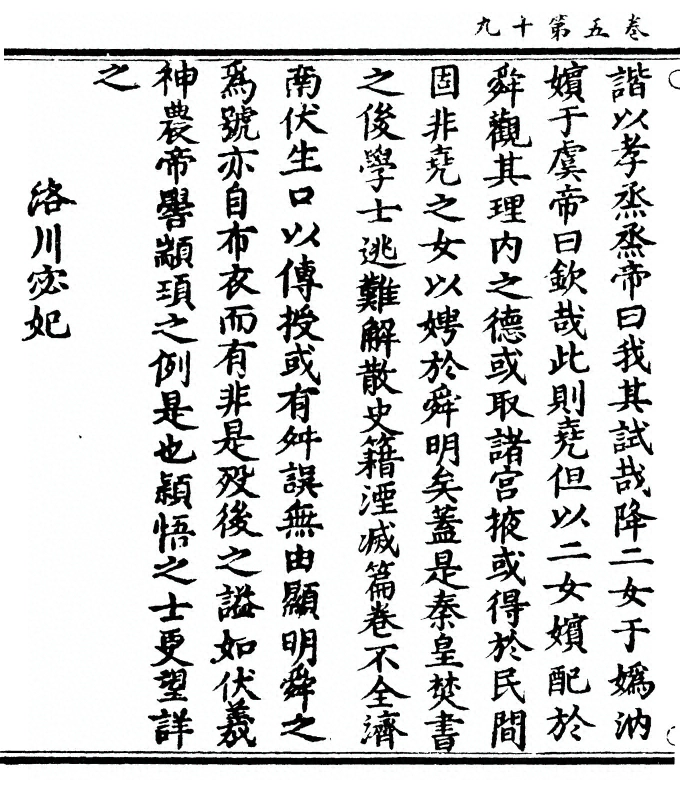 卷五第十九
諧以孝烝烝帝曰我其試哉降二女于嬀汭
嬪于虞帝曰欽哉此則堯但以二女嬪配於
舜觀其理内之德或取諸宫掖或得於民間
固非堯之女以娉於舜明矣蓋是秦皇焚書
之後學士逃難解散史籍湮滅篇卷不全濟
南伏生口以傳授或有舛誤無由顯明舜之
爲號亦自布衣而有非是歿後之謚如伏羲
神農帝嚳顓頊之例是也穎悟之士更望詳
之
洛川宓妃